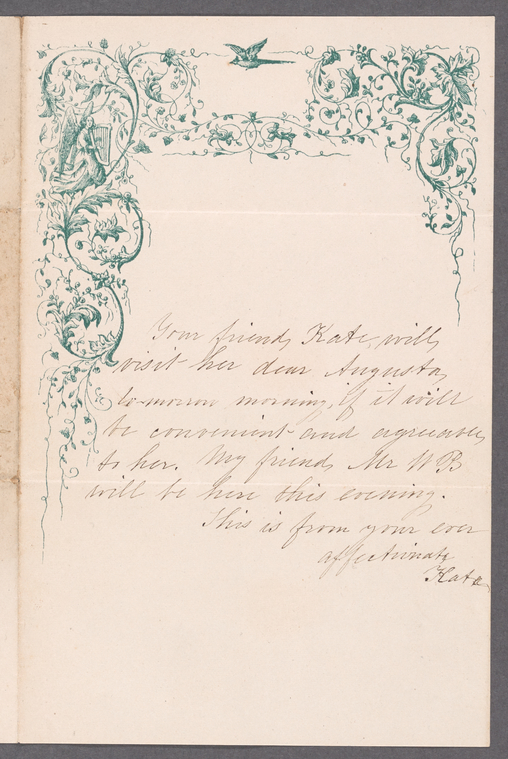 Your friend, Kate, will,
visit her dear Augusta,
to-morrow morning, if it will
be convenient and agreeable,
to her. My friend, Mr W B
will be here this evening.
This is from your ever
affectionate
Kate